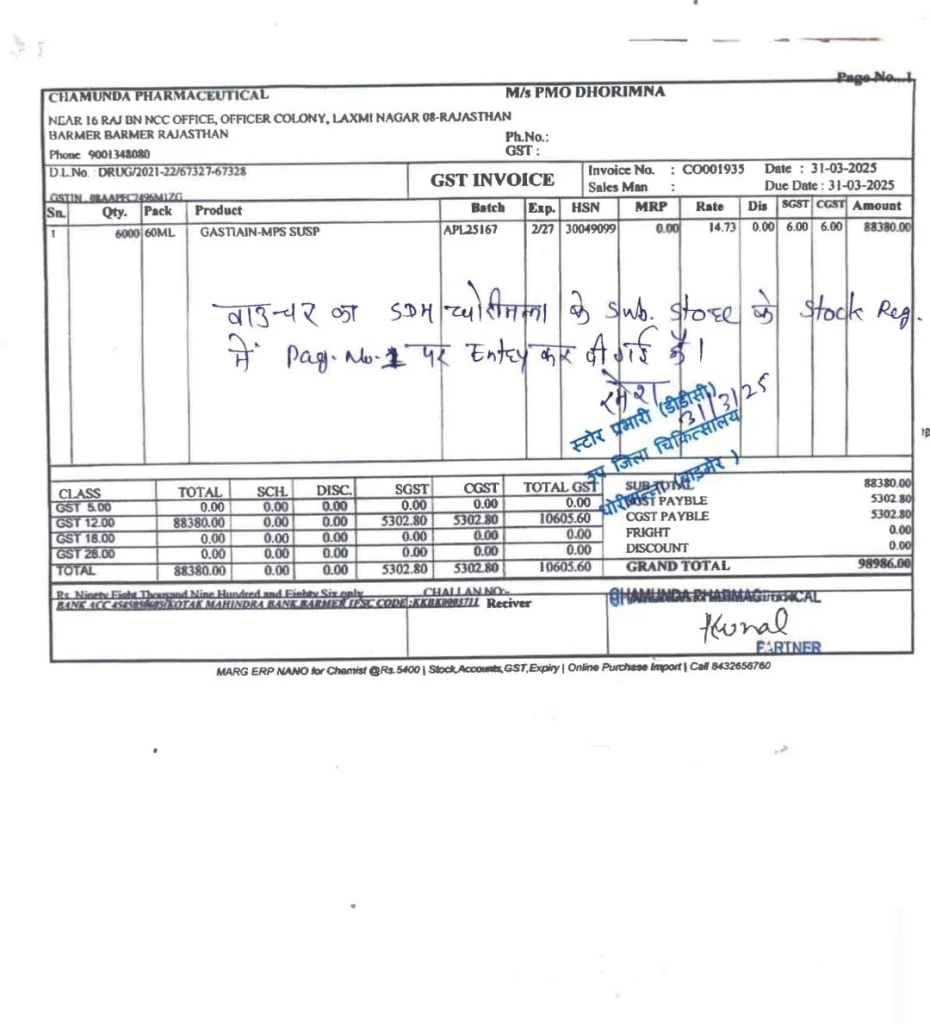 Page No...1
CHAMUNDA PHARMACEUTICAL
M/s PMO DHORIMNA
NEAR 16 RAJ BN NCC OFFICE, OFFICER COLONY, LAXMI NAGAR 08-RAJASTHAN
BARMER BARMER RAJASTHAN
Ph.No.:
Phone 9001348080
GST :
D.L.No. DRUG/2021-22/67327-67328
GSTIN
GST INVOICE
Invoice No. : CO001935 Date : 31-03-2025
Sales Man : Due Date : 31-03-2025
Sn. Qty. Pack Product Batch Exp. HSN MRP Rate Dis SGST CGST Amount
1 6000 60ML GASTIAIN-MPS SUSP APL25167 2/27 30049099 0.00 14.73 0.00 6.00 6.00 88380.00
वाउचर का SDM के Sub. Store के Stock Reg.
में Pag. No. 1 पर Entry कर दी गई है।
रमेश
31/3/25
स्टोर प्रभारी (डीडीसी)
उप जिला चिकित्सालय
धोरीमन्ना (बाड़मेर)
CLASS TOTAL SCH. DISC. SGST CGST TOTAL GST
GST 5.00 0.00 0.00 0.00 0.00 0.00 0.00
GST 12.00 88380.00 0.00 0.00 5302.80 5302.80 10605.60
GST 18.00 0.00 0.00 0.00 0.00 0.00 0.00
GST 28.00 0.00 0.00 0.00 0.00 0.00 0.00
TOTAL 88380.00 0.00 0.00 5302.80 5302.80 10605.60
SUB TOTAL 88380.00
SGST PAYBLE 5302.80
CGST PAYBLE 5302.80
FRIGHT 0.00
DISCOUNT 0.00
GRAND TOTAL 98986.00
Rs. Ninety Eight Thousand Nine Hundred and Eighty Six only
CHALLAN NO:-
BANK ACC KOTAK MAHINDRA BANK BARMER IFSC CODE
Reciver
CHAMUNDA PHARMACEUTICAL
Kunal
PARTNER
MARG ERP NANO for Chemist @Rs.5400 | Stock,Accounts,GST,Expiry | Online Purchase Import | Call 8432656760